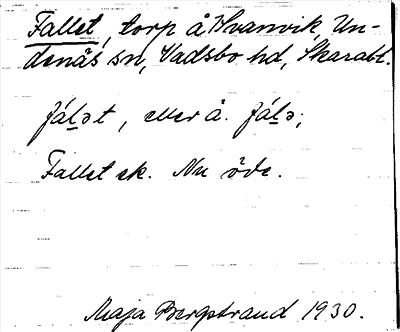 Fallet, torp å Kvarnvik, Un-
denäs sn, Vadsbo hd, Skarabl.
fáḻət, eller å. fáḻə;
Fallet ek. Nu öde.
Maja Bergstrand 1930.